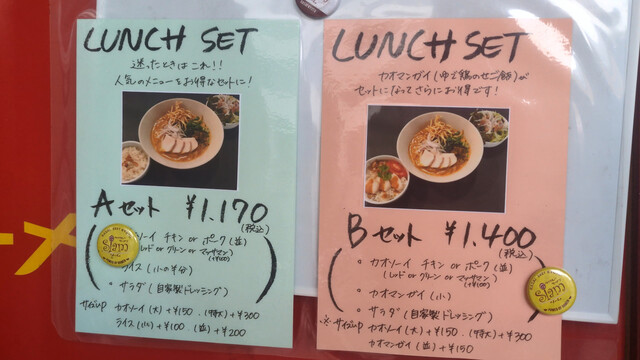 LUNCH SET
迷ったときはこれ!!
人気のメニューをお得なセットに!
Aセット ¥1.170
(税込)
ソーイ チキン or ポーク (並)
(レッド or グリーン or マッサマン)
(+¥100)
ライス (小の半分)
・サラダ (自家製ドレッシング)
サイズUP カオソーイ (大) +¥150 . (特大) +¥300
ライス (小) +¥100 (並) +¥200
LUNCH SET
カオマンガイ (ゆで鶏のせご飯) が
セットになってさらにお得です!
Bセット ¥1.400
(税込)
・カオソーイ チキン or ポーク (並)
(レッド or グリーン or マッサマン)
(+¥100)
・カオマンガイ (小)
・サラダ (自家製ドレッシング)
※サイズUP カオソーイ (大) +¥150 . (特大) +¥300
カオマンガイ (並) +¥150
Slam
Slam
ーメ